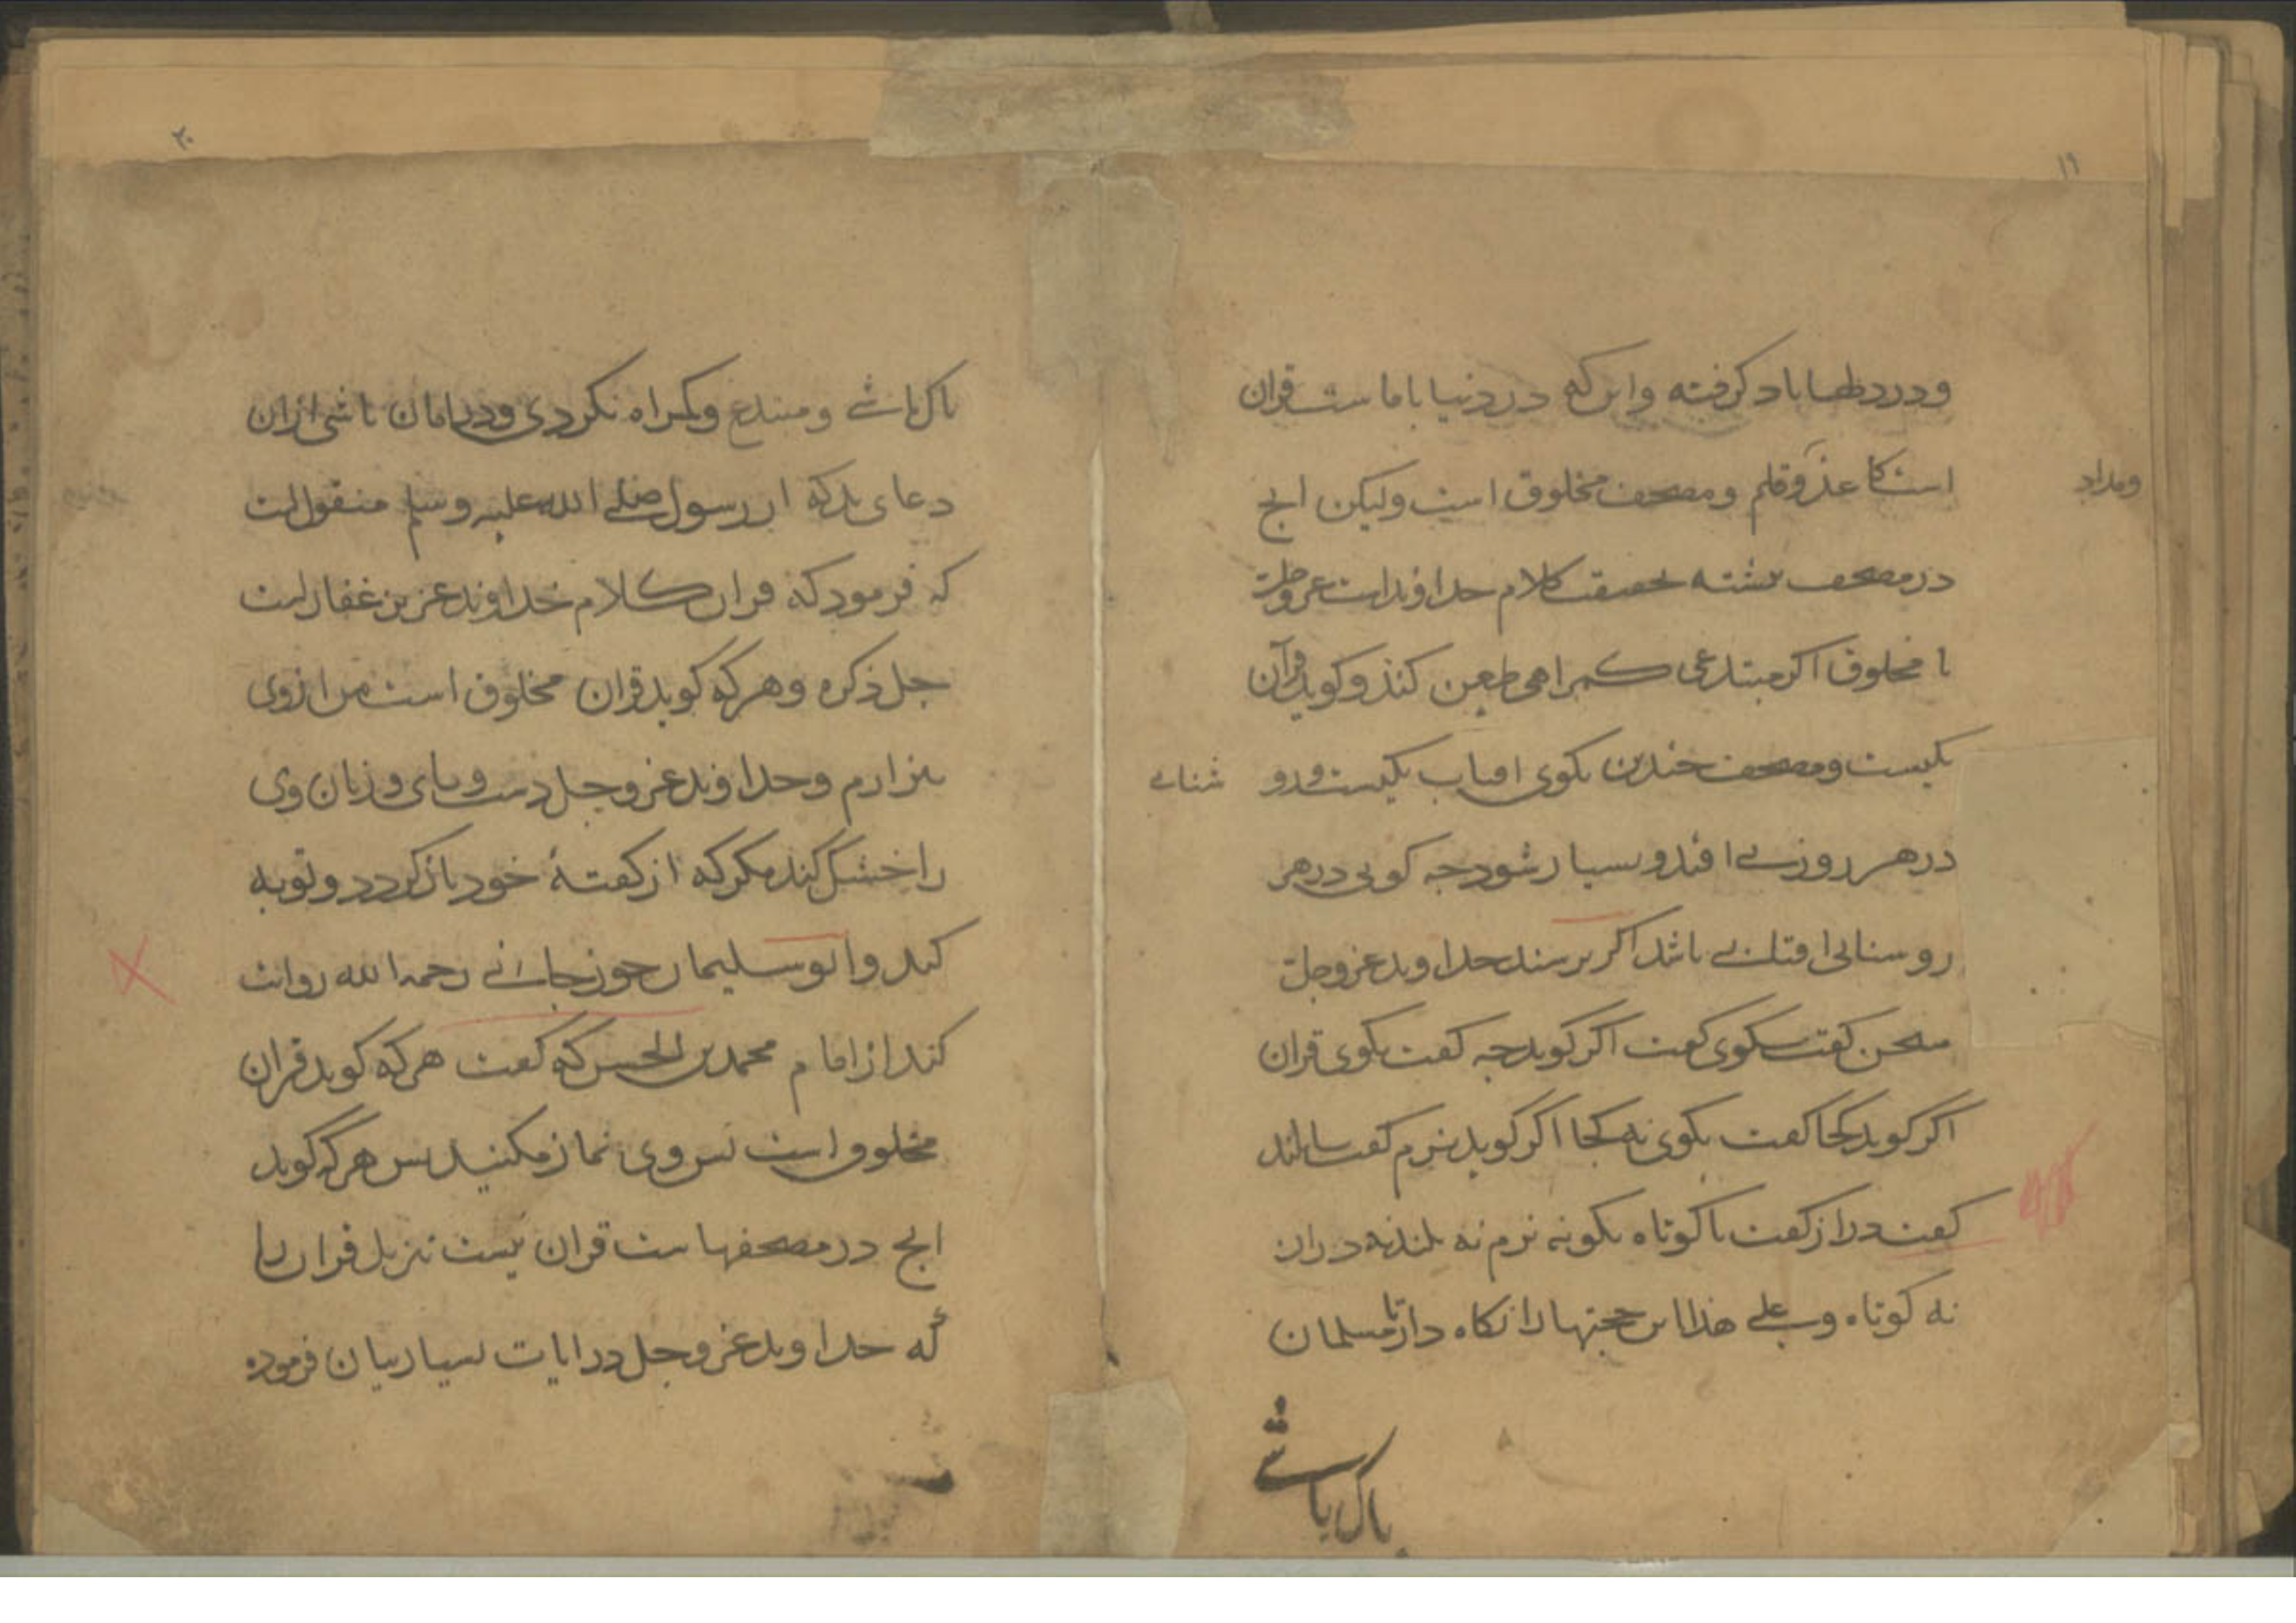 ۱۹
ودردلها یاد کرفته واین که در دنیا با ماست قران
است کاغذ و قلم ومصحف مخلوق است ولیکن انج
ومداد
در مصحف نبشته بحقیقت کلام خداوند است عز وجل
نا مخلوق اکر مبتدعی کمراهی طعن کند و کوید قرآن
یکیست ومصحف جندین بکوی افتاب یکیست و دو شنائی
در هر روزنے افتد وبسیار شود جه کوئی در هر
روسنائی افتاب باشد اکر برسند خداوند عز وجل
سخن کفت بکوی کفت اکر کوید جه کفت بکوی قران
اکر کوید کجا کفت بکوی نه کجا اکر کوید نرم کفت یا بلند
کفت دراز کفت یا کوتاه بکو نه نرم نه بلند نه دراز
نه کوتاه وعلے هذا این حجتها را نکاه دار تا مسلمان
باک باشے
۲۰
باک باشے ومبتدع وکمراه نکردی ودر امان باشی ازان
دعای بد که از رسول صلے الله علیه وسلم منقول است
که فرمود که قران کلام خداوند عزیز غفار است
جل ذکره وهر که کوید قران مخلوق است من از وی
بیزارم وخداوند عز وجل دست وبای وزبان وی
را خشک کند مکر که از کفتۀ خود باز کردد وتوبه
کند وابو سلیمان جوزجانے رحمه الله روایت
کند از امام محمد بن الحسن که کفت هر که کوید قران
مخلوق است بس وی نماز مکنید بس هر که کوید
انج در مصحفهاست قران نیست تنزیل قران را
که خداوند عز وجل در ایات بسیار بیان فرموده